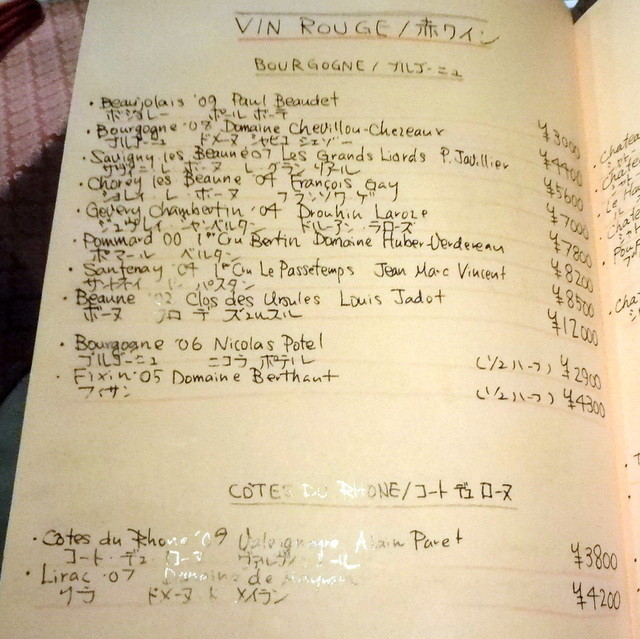 VIN ROUGE / 赤ワイン
BOURGOGNE / ブルゴーニュ
・Beaujolais '09 Paul Beaudet
ボジョレー ポール ボーデ
¥3000
・Bourgogne '08 Domaine Chevillon-Chezeaux
ブルゴーニュ ドメーヌ シェビヨ シェゾー
¥4400
・Savigny les Beaune '07 Les Grands Liards P. Javillier
サヴィニ レ ボーヌ レ グラン リアール
¥5600
・Chorey les Beaune '04 François Gay
ショレイ レ ボーヌ フランソワ ゲイ
¥7000
・Gevery Chambertin '04 Drouhin Laroze
ジュヴレイ シャンベルタン ドルーアン ラローズ
¥7800
・Pommard 00 1er Cru Bertin Domaine Huber-Verdereau
ポマール ベルタン
¥8200
・Santenay '04 1er Cru Le Passetemps Jean Marc Vincent
サントネイ パスタン
¥8500
・Beaune '02 Clos des Ursules Louis Jadot
ボーヌ クロ デ ズュルスル
¥12000
・Bourgogne '06 Nicolas Potel
ブルゴーニュ ニコラ ポテル
(1/2ハーフ) ¥2900
・Fixin '05 Domaine Berthaut
フィサン
(1/2ハーフ) ¥4300
COTES DU RHONE / コート デュ ローヌ
・Côtes du Rhone '09 Alain Paret
コート・デュ ローヌ
¥3800
・Lirac '07 Domaine de
リラ ドメーヌ ド
¥4200